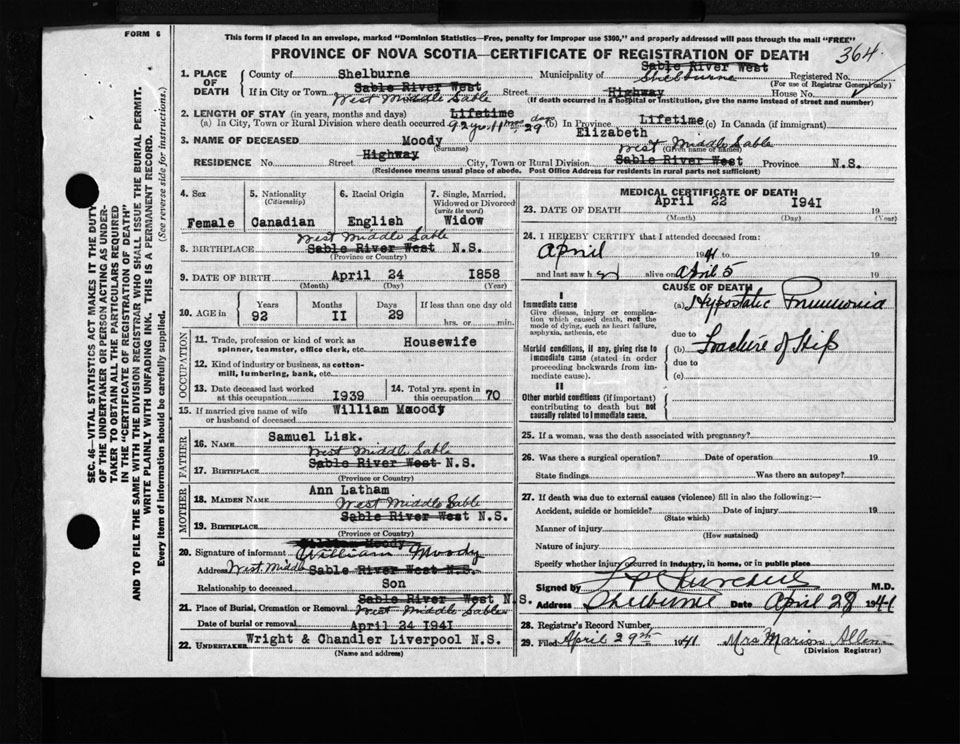 FORM 6
This form if placed in an envelope, marked "Dominion Statistics—Free, penalty for improper use $300," and properly addressed will pass through the mail "FREE"
PROVINCE OF NOVA SCOTIA—CERTIFICATE OF REGISTRATION OF DEATH
364
SEC. 46—VITAL STATISTICS ACT MAKES IT THE DUTY
OF THE UNDERTAKER OR PERSON ACTING AS UNDER-
TAKER TO OBTAIN ALL THE PARTICULARS REQUIRED
IN THE "CERTIFICATE OF REGISTRATION OF DEATH"
AND TO FILE THE SAME WITH THE DIVISION REGISTRAR WHO SHALL ISSUE THE BURIAL PERMIT.
WRITE PLAINLY WITH UNFADING INK. THIS IS A PERMANENT RECORD.
Every item of information should be carefully supplied. (See reverse side for instructions.)
Sable River West
1. PLACE OF DEATH County of Shelburne Municipality of Shelburne Registered No.
(For use of Registrar General only)
If in City or Town Sable River West Street Highway House No.
West Middle Sable
(If death occurred in a hospital or institution, give the name instead of street and number)
2. LENGTH OF STAY (in years, months and days) Lifetime
(a) In City, Town or Rural Division where death occurred 92 yrs. 11 mos 29 days (b) In Province Lifetime (c) In Canada (if immigrant)
3. NAME OF DECEASED Moody Elizabeth
(Surname) (Given name or names)
West Middle Sable
RESIDENCE No. Street Highway City, Town or Rural Division Sable River West Province N.S.
(Residence means usual place of abode. Post Office Address for residents in rural parts not sufficient)
4. Sex Female
5. Nationality (Citizenship) Canadian
6. Racial Origin English
7. Single, Married, Widowed or Divorced (write the word) Widow
West Middle Sable
8. BIRTHPLACE Sable River West N.S.
(Province or Country)
9. DATE OF BIRTH April 24 1858
(Month) (Day) (Year)
10. AGE in Years 92 Months 11 Days 29 If less than one day old hrs. or min.
OCCUPATION
11. Trade, profession or kind of work as spinner, teamster, office clerk, etc. Housewife
12. Kind of industry or business, as cotton-mill, lumbering, bank, etc.
13. Date deceased last worked at this occupation 1939
14. Total yrs. spent in this occupation 70
15. If married give name of wife or husband of deceased William Mmoody
FATHER
16. NAME Samuel Lisk.
West Middle Sable
17. BIRTHPLACE Sable River West N.S.
(Province or Country)
MOTHER
18. MAIDEN NAME Ann Latham
West Middle Sable
19. BIRTHPLACE Sable River West N.S.
(Province or Country)
William Moody
20. Signature of informant William Moody
Address West Middle Sable River West N.S.
Relationship to deceased Son
Sable River West N.S.
21. Place of Burial, Cremation or Removal West Middle Sable
Date of burial or removal April 24 1941
22. UNDERTAKER Wright & Chandler Liverpool N.S.
(Name and address)
MEDICAL CERTIFICATE OF DEATH
23. DATE OF DEATH April 22 1941 19
(Month) (Day) (Year)
24. I HEREBY CERTIFY that I attended deceased from:
April 1941 to 19
and last saw h er alive on April 5 19
CAUSE OF DEATH
I
Immediate cause (a) Hypostatic Pneumonia
Give disease, injury or complication which caused death, not the mode of dying, such as heart failure, asphyxia, asthenia, etc
due to
Morbid conditions, if any, giving rise to immediate cause (stated in order proceeding backwards from immediate cause). (b) Fracture of Hip
due to
(c)
II
Other morbid conditions (if important) contributing to death but not causally related to immediate cause.
25. If a woman, was the death associated with pregnancy?
26. Was there a surgical operation? Date of operation 19
State findings Was there an autopsy?
27. If death was due to external causes (violence) fill in also the following:—
Accident, suicide or homicide? Date of injury 19
(State which)
Manner of injury
(How sustained)
Nature of injury
Specify whether injury occurred in industry, in home, or in public place
Signed by M.D.
Address Shelburne Date April 28 1941
28. Registrar's Record Number
29. Filed April 29th 1941 Mrs Marion Allen
(Division Registrar)